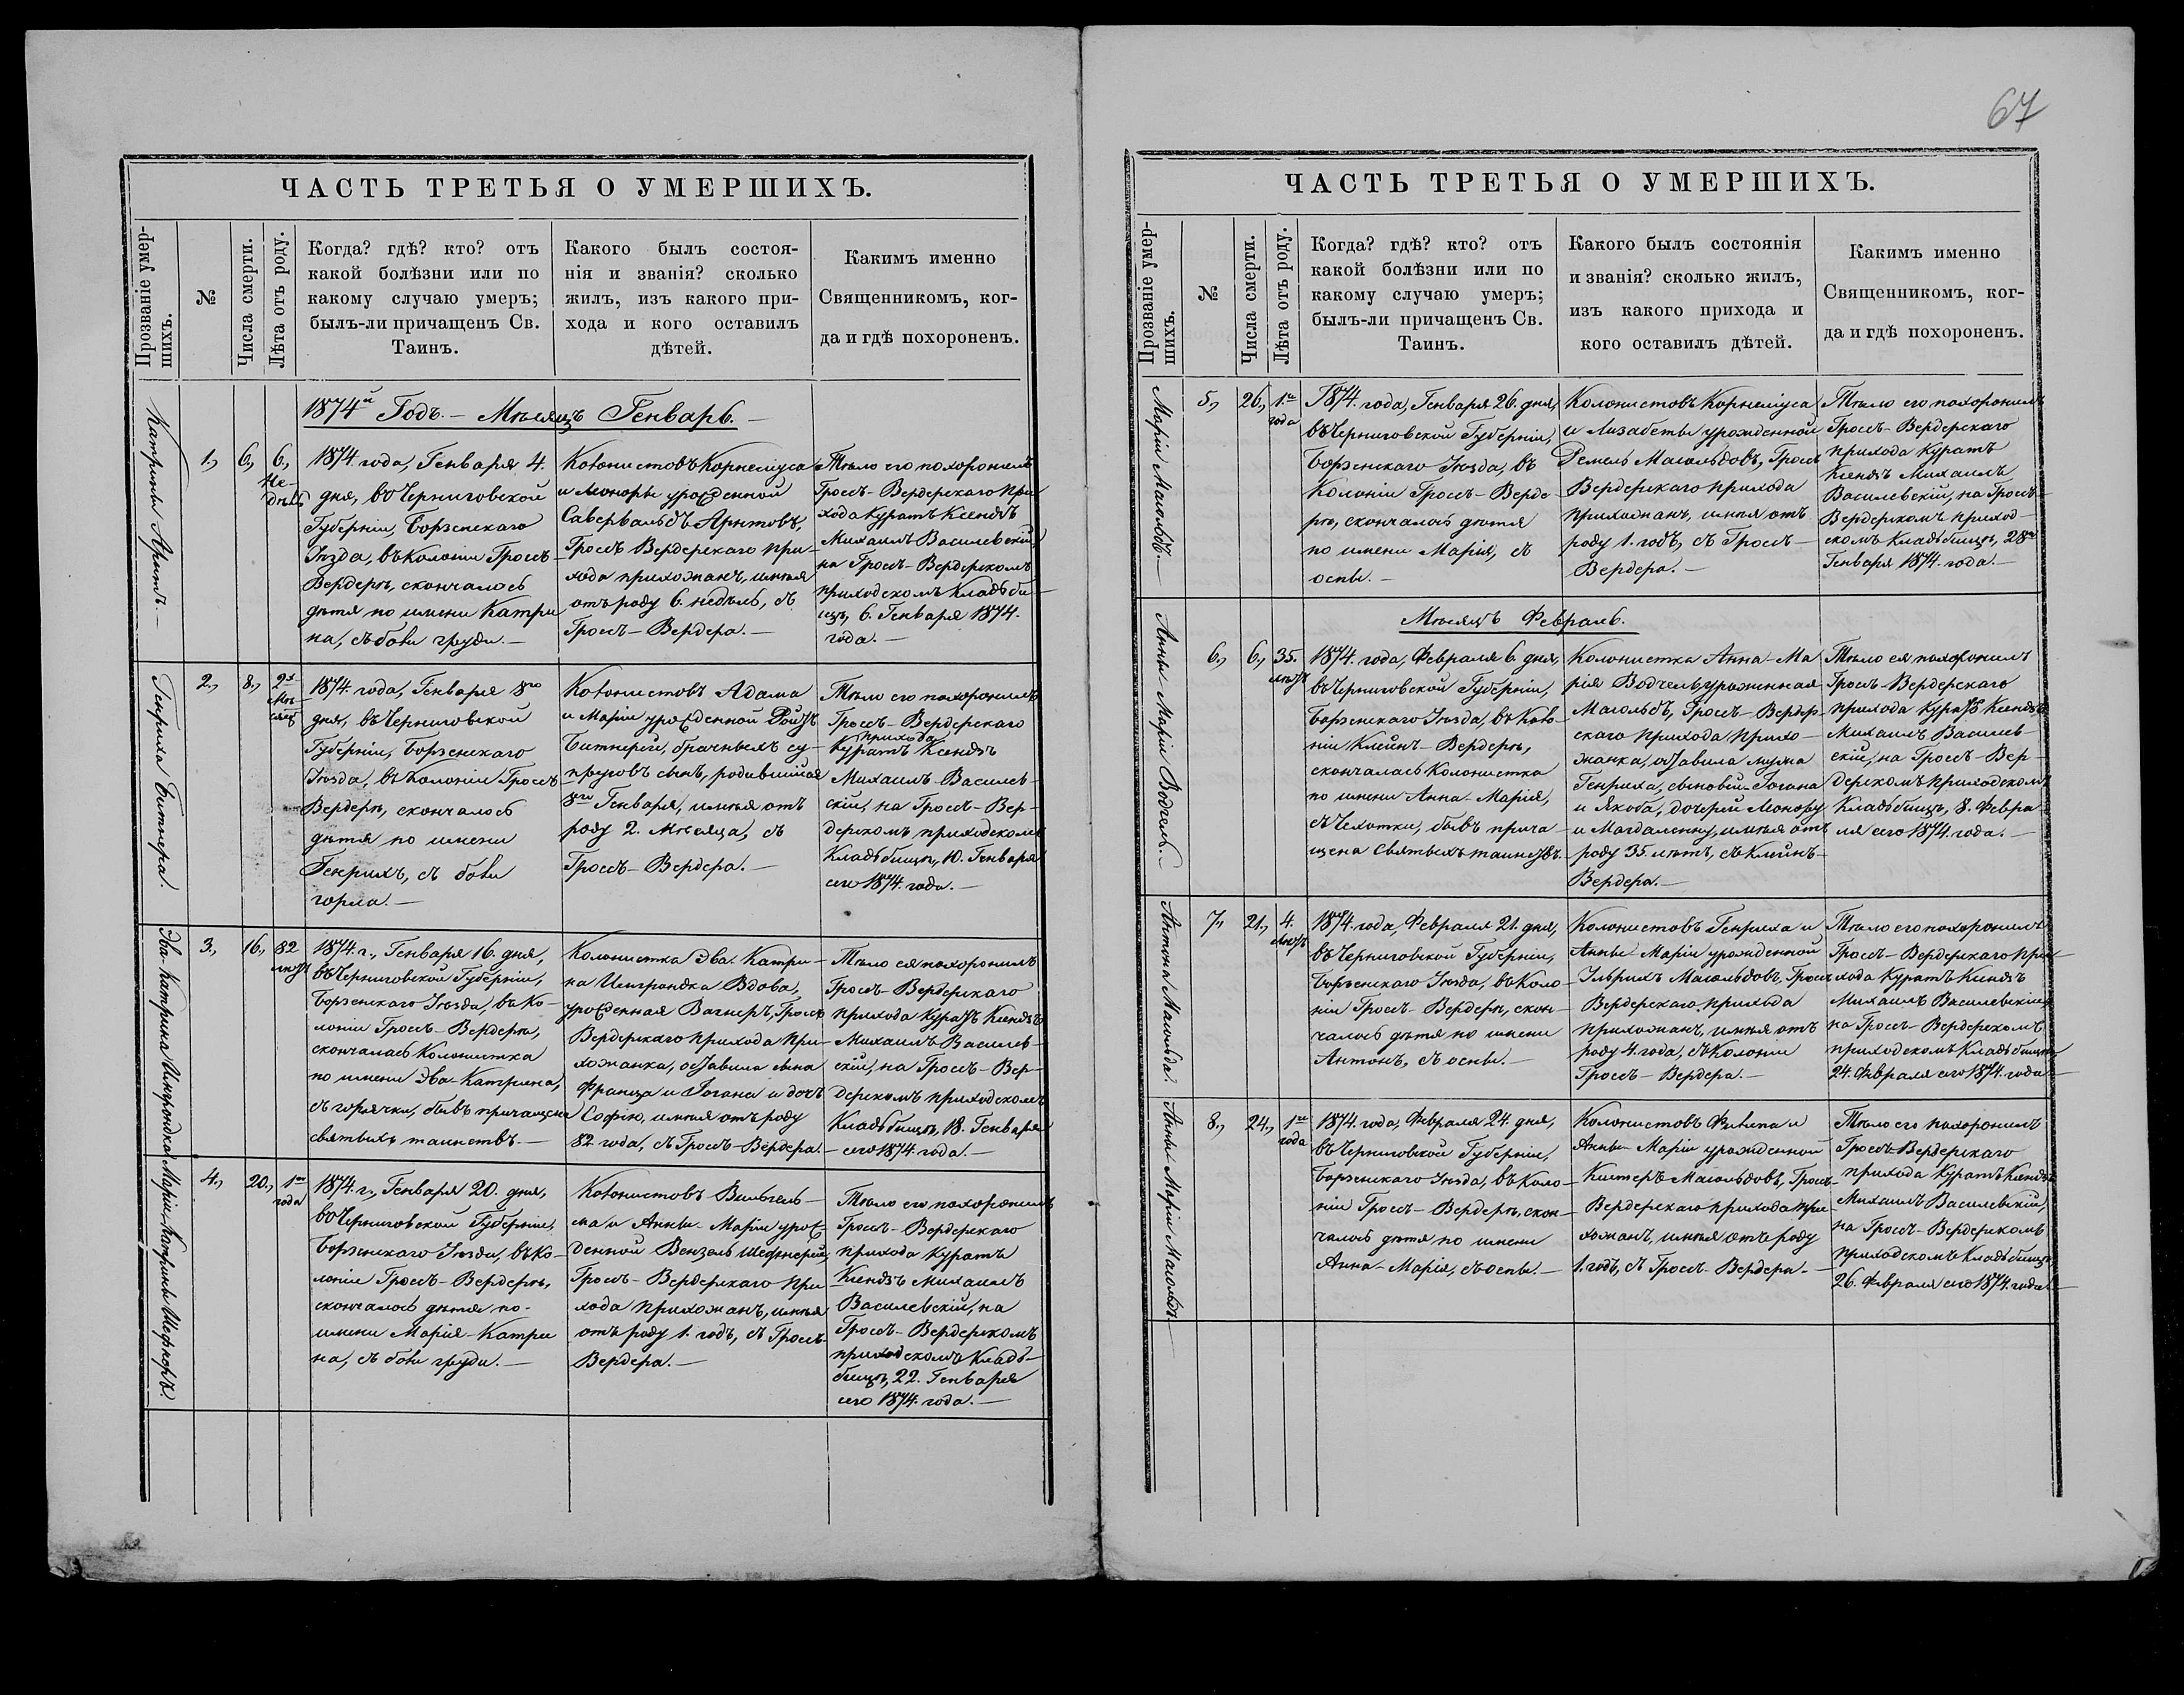 ЧАСТЬ ТРЕТЬЯ О УМЕРШИХЪ.
Прозваніе умер-
шихъ.
№
Числа смерти.
Лѣта отъ роду.
Когда? гдѣ? кто? отъ
какой болѣзни или по
какому случаю умеръ;
былъ-ли причащенъ Св.
Таинъ.
Какого былъ состоя-
нія и званія? сколько
жилъ, изъ какого при-
хода и кого оставилъ
дѣтей.
Какимъ именно
Священникомъ, ког-
да и гдѣ похороненъ.
1874й Годъ. — Мѣсяцъ Генварь. —
Катрины Арнтъ —
1.,
6.,
6.,
Не-
дѣль
1874. года, Генваря 4.
дня, въ Черниговской
Губерніи, Борзенскаго
Уѣзда, въ Колоніи Гросъ-
Вердеръ, скончалось
дѣтя по имени Катри
на, съ боли груди. —
Колонистовъ Корнеліуса
и Леоноры урожденной
Арнтовъ,
Гросъ Вердерскаго при-
хода прихожанъ, имѣя
отъ роду 6. недѣль, съ
Гросъ-Вердера. —
Тѣло его похоронилъ
Гросъ-Вердерскаго при
хода Куратъ Ксендзъ
Михаилъ Василевскій,
на Гросъ-Вердерскомъ
приходскомъ Кладби-
щѣ, 6. Генваря 1874.
года. —
Генриха Битнера.
2.,
8.,
2х
Мѣ-
сяц
1874. года, Генваря 8го
дня, въ Черниговской
Губерніи, Борзенскаго
Уѣзда, въ Колоніи Гросъ
Вердеръ, скончалось
дѣтя по имени
Генрихъ, съ боли
горла. —
Колонистовъ Адама
и Маріи урожденной
Битнерей, брачныхъ су-
пруговъ сынъ, родившійся
Генваря, имѣя отъ
роду 2. Мѣсяца, съ
Гросъ-Вердера. —
Тѣло его похоронилъ
Гросъ-Вердерскаго
прихода
Куратъ Ксендзъ
Михаилъ Василев-
скій, на Гросъ-Вер-
дерскомъ приходскомъ
Кладбищѣ, 10. Генваря
сего 1874. года. —
Эва-Катрина
3.,
16.,
82
лѣтъ
1874. г., Генваря 16. дня,
въ Черниговской Губерніи,
Борзенскаго Уѣзда, въ Ко-
лоніи Гросъ-Вердеръ,
скончалась Колонистка
по имени Эва-Катрина,
съ горячки, бывъ причащена
святыхъ таинствъ. —
Колонистка Эва-Катри-
на Вдова,
урожденная Вагнеръ, Гросъ
Вердерскаго прихода при-
хожанка, оставила сына
Франца и Іогана и дочь
Софію, имѣя отъ роду
82. года, съ Гросъ-Вердера. —
Тѣло ея похоронилъ
Гросъ-Вердерскаго
прихода Куратъ Ксендзъ
Михаилъ Василев-
скій, на Гросъ-Вер-
дерскомъ приходскомъ
Кладбищѣ, 18. Генваря
сего 1874. года. —
Маріи-Катрины Шефнеръ.
4.,
20.,
1го
года
1874. г., Генваря 20. дня,
въ Черниговской Губерніи,
Борзенскаго Уѣзда, въ Ко-
лоніи Гросъ-Вердеръ,
скончалось дѣтя по-
имени Марія-Катри
на, съ боли груди. —
Колонистовъ Вильгель-
ма и Анны-Маріи урож
денной Вензель Шефнерей,
Гросъ-Вердерскаго при
хода прихожанъ, имѣя
отъ роду 1. годъ, съ Гросъ-
Вердера. —
Тѣло его похоронилъ
Гросъ-Вердерскаго
прихода Куратъ
Ксендзъ Михаилъ
Василевскій, на
Гросъ-Вердерскомъ
приходскомъ Клад-
бищѣ, 22. Генваря
сего 1874. года. —
67
ЧАСТЬ ТРЕТЬЯ О УМЕРШИХЪ.
Прозваніе умер-
шихъ.
№
Числа смерти.
Лѣта отъ роду.
Когда? гдѣ? кто? отъ
какой болѣзни или по
какому случаю умеръ;
былъ-ли причащенъ Св.
Таинъ.
Какого былъ состоянія
и званія? сколько жилъ,
изъ какого прихода и
кого оставилъ дѣтей.
Какимъ именно
Священникомъ, ког-
да и гдѣ похороненъ.
Маріи Магольдъ. —
5.,
26.,
1го
года
1874. года, Генваря 26. дня,
въ Черниговской Губерніи,
Борзенскаго Уѣзда, въ
Колоніи Гросъ-Верде
ръ, скончалось дѣтя
по имени Марія, съ
оспы. —
Колонистовъ Корнеліуса
и Лизабеты урожденной
Ремель Магольдовъ, Гросъ
Вердерскаго прихода
прихожанъ, имѣя отъ
роду 1. годъ, съ Гросъ-
Вердера. —
Тѣло его похоронилъ
Гросъ-Вердерскаго
прихода Куратъ
Ксендзъ Михаилъ
Василевскій, на Гросъ-
Вердерскомъ приход-
скомъ Кладбищѣ, 28го
Генваря 1874. года. —
Мѣсяцъ Февраль.
Анны-Маріи Водчель.
6.,
6.,
35.
лѣтъ
1874. года, Февраля 6. дня,
въ Черниговской Губерніи,
Борзенскаго Уѣзда, въ Коло-
ніи Клейнъ-Вердеръ,
скончалась Колонистка
по имени Анна-Марія,
съ чехотки, бывъ прича-
щена святыхъ таинствъ. —
Колонистка Анна-Ма
рія Водчель урожденная
Магольдъ, Гросъ-Вердер-
скаго прихода прихо-
жанка, оставила мужа
Генриха, сыновей-Іогана
и Якоба, дочерей Леонору
и Магдаленну, имѣя отъ
роду 35. лѣтъ, съ Клейнъ-
Вердера. —
Тѣло ея похоронилъ
Гросъ-Вердерскаго
прихода Куратъ Ксендзъ
Михаилъ Василев-
скій, на Гросъ-Вер-
дерскомъ приходскомъ
Кладбищѣ, 8. Февра
ля сего 1874. года. —
Антона Магольда.
7.,
21.,
4.
лѣтъ
1874. года, Февраля 21. дня,
въ Черниговской Губерніи,
Борзенскаго Уѣзда, въ Коло-
ніи Гросъ-Вердеръ, скон-
чалось дѣтя по имени
Антонъ, съ оспы. —
Колонистовъ Генриха и
Анны-Маріи урожденной
Ульрихъ Магольдовъ, Гросъ
Вердерскаго прихода
прихожанъ, имѣя отъ
роду 4. года, съ Колоніи
Гросъ-Вердера. —
Тѣло его похоронилъ
Гросъ-Вердерскаго при-
хода Куратъ Ксендзъ
Михаилъ Василевскій,
на Гросъ-Вердерскомъ
приходскомъ Кладбищѣ,
24. Февраля сего 1874. года. —
Анны-Маріи Магольдъ. —
8.,
24.,
1го
года
1874. года, Февраля 24. дня,
въ Черниговской Губерніи,
Борзенскаго Уѣзда, въ Коло-
ніи Гросъ-Вердеръ, скон-
чалось дѣтя по имени
Анна-Марія, съ оспы. —
Колонистовъ Филипа и
Анны-Маріи урожденной
Кистеръ Магольдовъ, Гросъ-
Вердерскаго прихода при
хожанъ, имѣя отъ роду
1. годъ, съ Гросъ-Вердера. —
Тѣло его похоронилъ
Гросъ-Вердерскаго
прихода Куратъ Ксендзъ
Михаилъ Василевскій,
на Гросъ-Вердерскомъ
приходскомъ Кладбищѣ
26. Февраля сего 1874. года. —